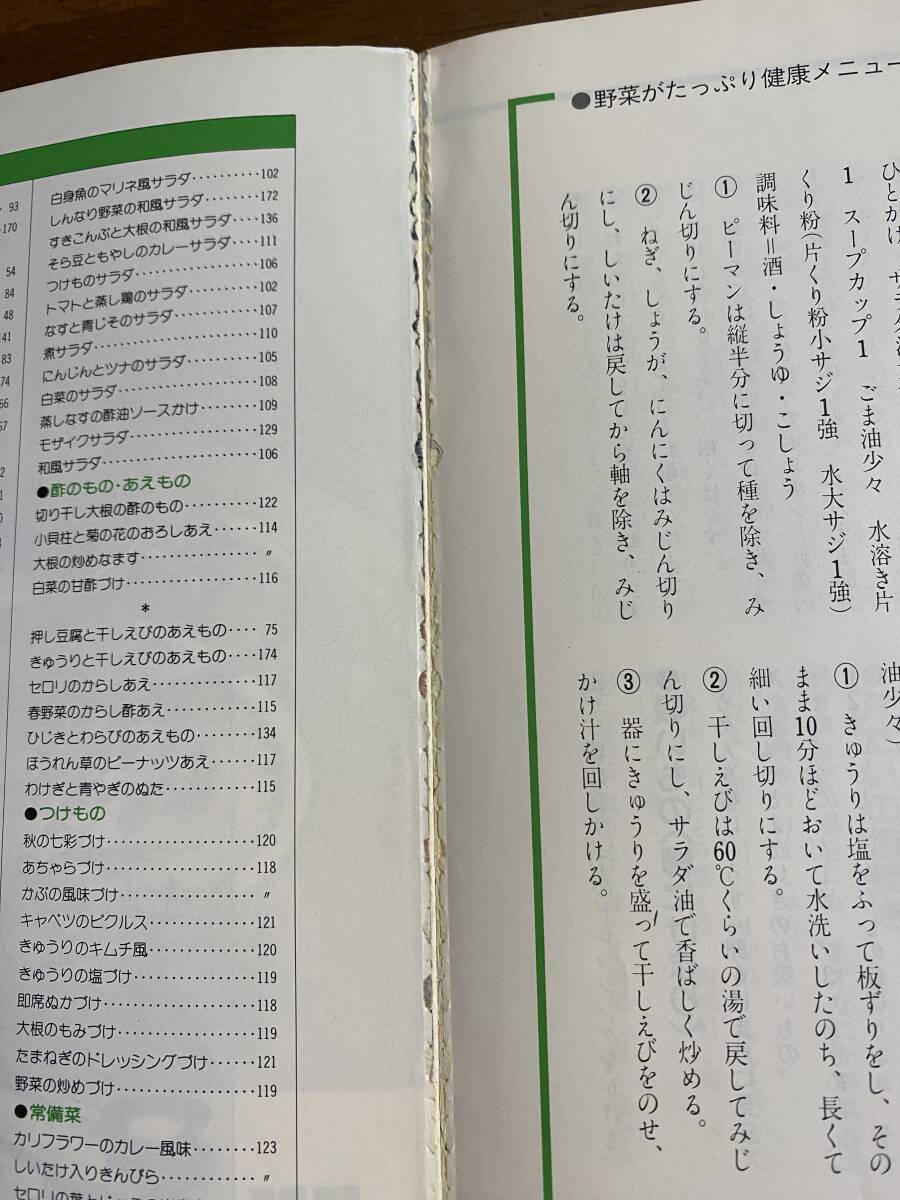 93
170
54
84
48
141
83
74
66
67
2
1
0
4
白身魚のマリネ風サラダ‥‥‥‥‥102
しんなり野菜の和風サラダ‥‥‥‥172
すきこんぶと大根の和風サラダ‥‥136
そら豆ともやしのカレーサラダ‥‥111
つけものサラダ‥‥‥‥‥‥‥‥106
トマトと蒸し鶏のサラダ‥‥‥‥‥102
なすと青じそのサラダ‥‥‥‥‥‥107
煮サラダ‥‥‥‥‥‥‥‥‥‥‥110
にんじんとツナのサラダ‥‥‥‥‥105
白菜のサラダ‥‥‥‥‥‥‥‥‥108
蒸しなすの酢油ソースかけ‥‥‥‥109
モザイクサラダ‥‥‥‥‥‥‥‥129
和風サラダ‥‥‥‥‥‥‥‥‥‥106
●酢のもの・あえもの
切り干し大根の酢のもの‥‥‥‥‥122
小貝柱と菊の花のおろしあえ‥‥‥114
大根の炒めなます‥‥‥‥‥‥‥〃
白菜の甘酢づけ‥‥‥‥‥‥‥‥116
*
押し豆腐と干しえびのあえもの‥‥75
きゅうりと干しえびのあえもの‥‥174
セロリのからしあえ‥‥‥‥‥‥117
春野菜のからし酢あえ‥‥‥‥‥115
ひじきとわらびのあえもの‥‥‥‥134
ほうれん草のピーナッツあえ‥‥‥117
わけぎと青やぎのぬた‥‥‥‥‥115
●つけもの
秋の七彩づけ‥‥‥‥‥‥‥‥‥120
あちゃらづけ‥‥‥‥‥‥‥‥‥118
かぶの風味づけ‥‥‥‥‥‥‥‥〃
キャベツのピクルス‥‥‥‥‥‥121
きゅうりのキムチ風‥‥‥‥‥‥120
きゅうりの塩づけ‥‥‥‥‥‥‥119
即席ぬかづけ‥‥‥‥‥‥‥‥‥118
大根のもみづけ‥‥‥‥‥‥‥‥119
たまねぎのドレッシングづけ‥‥‥121
野菜の炒めづけ‥‥‥‥‥‥‥‥119
●常備菜
カリフラワーのカレー風味‥‥‥‥123
しいたけ入りきんぴら‥‥‥‥‥〃
●野菜がたっぷり健康メニュー
ひとかけ
1 スープカップ1 ごま油少々 水溶き片
くり粉(片くり粉小サジ1強 水大サジ1強)
調味料=酒・しょうゆ・こしょう
① ピーマンは縦半分に切って種を除き、み
じん切りにする。
② ねぎ、しょうが、にんにくはみじん切り
にし、しいたけは戻してから軸を除き、みじ
ん切りにする。
油少々)
① きゅうりは塩をふって板ずりをし、その
まま10分ほどおいて水洗いしたのち、長くて
細い回し切りにする。
② 干しえびは60℃くらいの湯で戻してみじ
ん切りにし、サラダ油で香ばしく炒める。
③ 器にきゅうりを盛って干しえびをのせ、
かけ汁を回しかける。